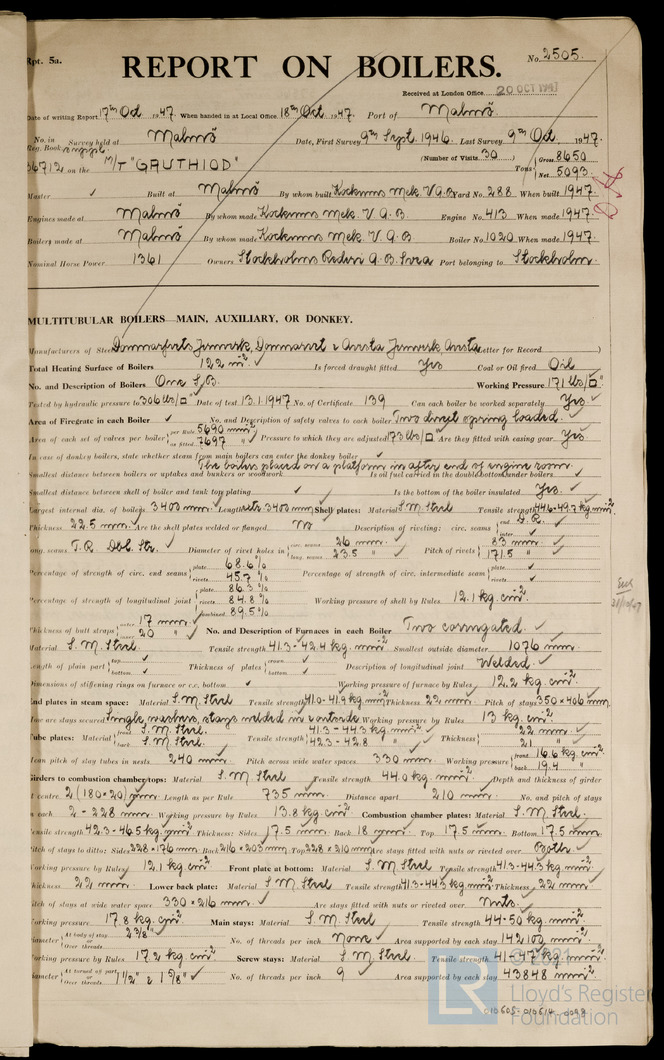 Rpt. 5a. No. 2505.
REPORT ON BOILERS.
Received at London Office 20 OCT 1947
Date of writing Report 17th Oct 1947. When handed in at Local Office 18th Oct. 1947. Port of Malmö
No. in Reg. Book Survey held at Malmö Date, First Survey 9th Sept. 1946. Last Survey 9th Oct. 1947.
36712 on the M/T "GAUTHIOD" (Number of Visits 30) Tons Gross 8650 Net 5093
Master ✓ Built at Malmö By whom built Kockums Mek. V. A.B. Yard No. 288 When built 1947.
Engines made at Malmö By whom made Kockums Mek. V. A.B. Engine No. 413 When made 1947.
Boilers made at Malmö By whom made Kockums Mek. V. A.B. Boiler No. 1020 When made 1947.
Nominal Horse Power 1361 Owners Stockholms Rederi A.B. Svea Port belonging to Stockholm.
MULTITUBULAR BOILERS MAIN, AUXILIARY, OR DONKEY.
Manufacturers of Steel Domnarfvets Jernverk, Domnarvet & Avesta Jernverk, Avesta (Letter for Record )
Total Heating Surface of Boilers 122 m² Is forced draught fitted Yes Coal or Oil fired Oil
No. and Description of Boilers One S.B. Working Pressure 171 lbs/□"
Tested by hydraulic pressure to 306 lbs/□" Date of test 13.1.1947 No. of Certificate 139 Can each boiler be worked separately Yes
Area of Firegrate in each Boiler ✓ No. and Description of safety valves to each boiler Two direct spring loaded.
Area of each set of valves per boiler per Rule 5690 mm² as fitted 7697 " Pressure to which they are adjusted 173 lbs/□ Are they fitted with easing gear Yes
In case of donkey boilers, state whether steam from main boilers can enter the donkey boiler ✓
Smallest distance between boilers or uptakes and bunkers or woodwork The boiler placed on a platform in after end of engine room. Is oil fuel carried in the double bottom under boilers
Smallest distance between shell of boiler and tank top plating ✓ Is the bottom of the boiler insulated Yes.
Largest internal dia. of boilers 3400 mm. Length 3400 mm Shell plates: Material S.M. Steel Tensile strength 44.6-49.7 kg.mm²
Thickness 22.5 mm. Are the shell plates welded or flanged No Description of riveting: circ. seams end D.R. inter ✓
long. seams T.R. Dbl. Str. Diameter of rivet holes in circ. seams 26 mm. long. seams 23.5 " Pitch of rivets 83 mm. 171.5 "
Percentage of strength of circ. end seams plate 68.6 % rivets 45.7 % Percentage of strength of circ. intermediate seam plate ✓ rivets ✓
Percentage of strength of longitudinal joint plate 86.3 % rivets 84.8 % combined 89.5 % Working pressure of shell by Rules 12.1 kg.cm²
Thickness of butt straps outer 17 mm inner 20 " No. and Description of Furnaces in each Boiler Two corrugated.
Material S.M. Steel Tensile strength 41.3-42.4 kg.mm² Smallest outside diameter 1076 mm.
Length of plain part top ✓ bottom ✓ Thickness of plates crown ✓ bottom ✓ Description of longitudinal joint Welded.
Dimensions of stiffening rings on furnace or c.c. bottom ✓ Working pressure of furnace by Rules 12.2 kg.cm²
End plates in steam space: Material S.M. Steel Tensile strength 41.0-41.9 kg.mm² Thickness 22 mm Pitch of stays 350 x 406 mm
How are stays secured Single washers, stays welded in & outside Working pressure by Rules 13 kg.cm²
Tube plates: Material front S.M. Steel. back S.M. Steel Tensile strength 41.3-44.3 kg.mm² 42.3-42.8 " Thickness 22 mm 21 "
Mean pitch of stay tubes in nests 240 mm Pitch across wide water spaces 330 mm Working pressure front 16.6 kg.cm² back 19.4 "
Girders to combustion chamber tops: Material S.M. Steel Tensile strength 44.0 kg.mm² Depth and thickness of girder
at centre 2 (180 x 20) mm Length as per Rule 735 mm Distance apart 210 mm No. and pitch of stays
in each 2 - 228 mm Working pressure by Rules 13.8 kg.cm² Combustion chamber plates: Material S.M. Steel.
Tensile strength 42.3-46.5 kg.mm² Thickness: Sides 17.5 mm Back 18 mm Top 17.5 mm Bottom 17.5 mm
Pitch of stays to ditto: Sides 228 x 176 mm Back 216 x 203 mm Top 228 x 210 mm Are stays fitted with nuts or riveted over Both
Working pressure by Rules 12.1 kg.cm² Front plate at bottom: Material S.M. Steel Tensile strength 41.3-44.3 kg.mm²
Thickness 22 mm Lower back plate: Material S.M. Steel Tensile strength 41.3-44.3 kg.mm² Thickness 22 mm
Pitch of stays at wide water space 330 x 216 mm Are stays fitted with nuts or riveted over Nuts.
Working pressure 17.8 kg.cm² Main stays: Material S.M. Steel Tensile strength 44-50 kg.mm²
Diameter At body of stay 2 3/8" or Over threads No. of threads per inch None Area supported by each stay 142100 mm²
Working pressure by Rules 17.2 kg.cm² Screw stays: Material S.M. Steel Tensile strength 41-47 kg.mm²
Diameter At turned off part or Over threads 1 1/2" & 1 5/8" No. of threads per inch 9 Area supported by each stay 43848 mm²
© 2021
LR
Lloyd's Register
Foundation
010605-010614-0098